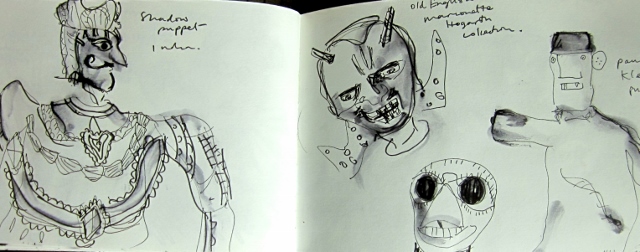 Shadow
puppet -
old English
marionette
Hogarth
collection.
pau
Kl
pu